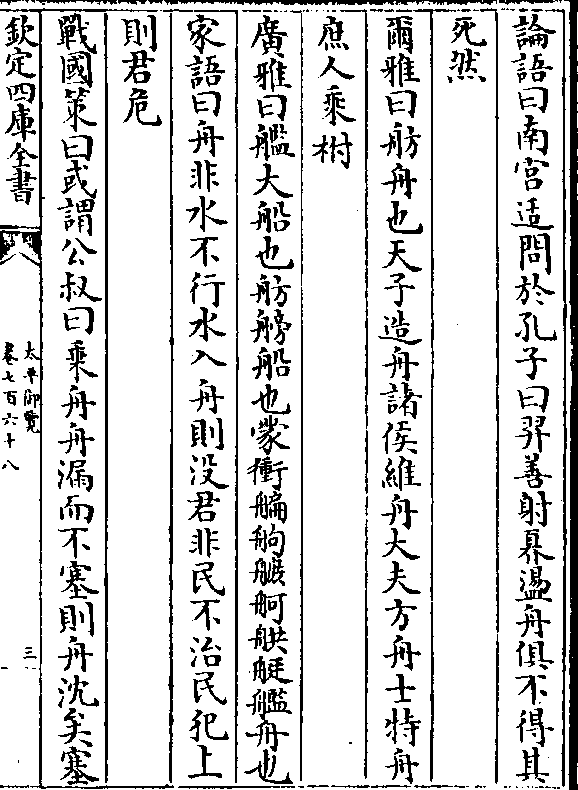 論語曰南宮适問於孔子曰羿善射奡盪舟俱不得其
死然
爾雅曰舫舟也天子造舟諸侯維舟大夫方舟士特舟
庶人乘柎
廣雅曰艦大船也舫艕船也艨衝艑䑦�timestamp舸䑪艇艦舟也
家語曰舟非水不行水入舟則没君非民不治民犯上
則君危
戰國策曰或謂公叔曰乘舟舟漏而不塞則舟沈矣塞
欽定四庫全書
太平御覽
卷七百六十八
三